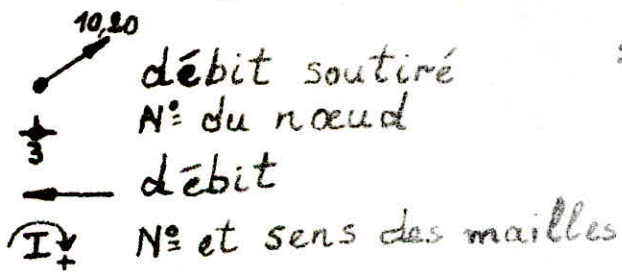 10,20
débit soutiré
N° du nœud
3
débit
I + N° et sens des mailles